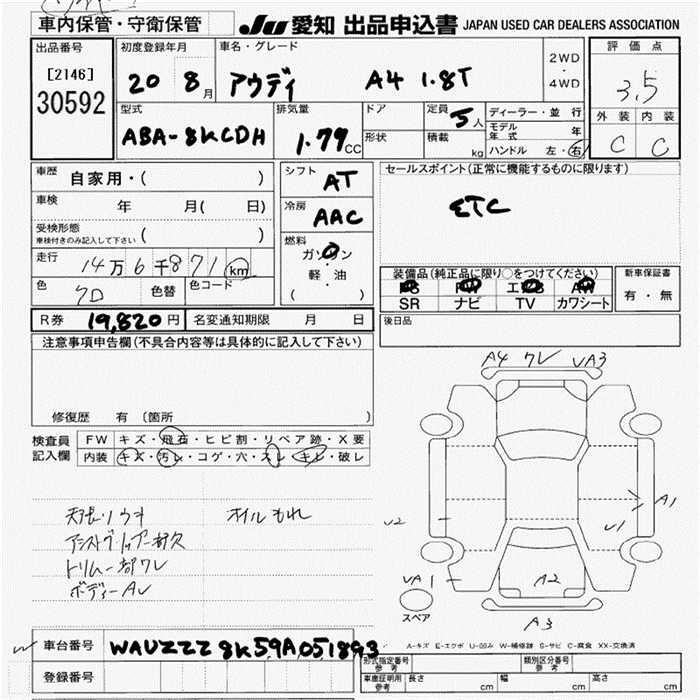 車内保管・守衛保管 JU 愛知 出品申込書 JAPAN USED CAR DEALERS ASSOCIATION
出品番号 初度登録年月 車名・グレード 2WD・4WD 評価点
[2146] 20 8月 アウディ A4 1.8T 3.5
30592 型式 排気量 ドア 定員 5人 ディーラー・並行 外装 内装
ABA-8KCDH 1.79CC 形状 積載 kg モデル年式 年 C C
ハンドル 左・右
車歴 自家用・( ) シフト AT セールスポイント(正常に機能するものに限ります)
車検 年 月( 日) 冷房 AAC ETC
受検形態 ( )
車検付きのみ記入して下さい
燃料 ガソリン
軽・油
( )
走行 14万6千871 km
装備品(純正品に限り○をつけてください) 新車保証書
色 クロ 色替 色コード
PS PW エアB AW 有・無
SR ナビ TV カワシート
R券 19,820円 名変通知期限 月 日 後日品
注意事項申告欄(不具合内容等は具体的に記入して下さい)
修復歴 有 〔箇所 〕
A4 ワレ UA3
検査員 FW キズ・飛石・ヒビ割・リペア跡・X要
記入欄 内装 キズ・汚レ・コゲ・穴・スレ・キレ・破レ
天張リウキ オイルもれ
トリム一部ワレ
ボディーAU
U2 U1 A1
UA1 A2
スペア A3
車台番号 WAUZZZ8K59A051893
A-キズ E-エクボ U-凹み W-補修跡 S-サビ C-腐食 XX-交換済
登録番号
形式指定番号 参考 類別区分番号 参考
車庫証明用 参考 長さ cm 幅 cm 高さ cm